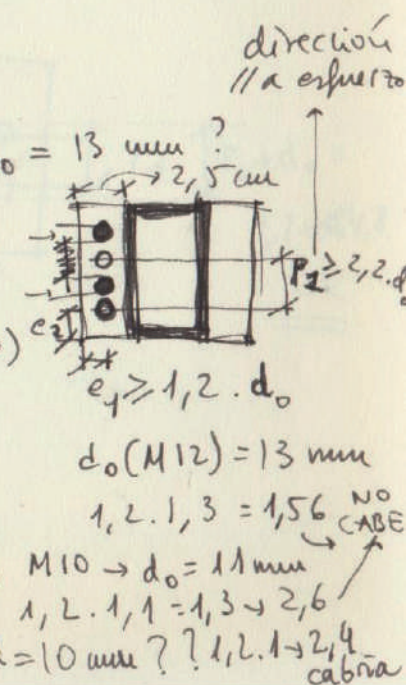 dirección
// a esfuerzo
o = 13 mm ?
2,5 cm
P1 ≥ 2,2 . do
e2
)
e1 ≥ 1,2 . do
do (M12) = 13 mm
1,2 . 1,3 = 1,56 NO CABE
M10 → do = 11 mm
1,2 . 1,1 = 1,3 → 2,6
= 10 mm ? ? 1,2 . 1 → 2,4
cabría